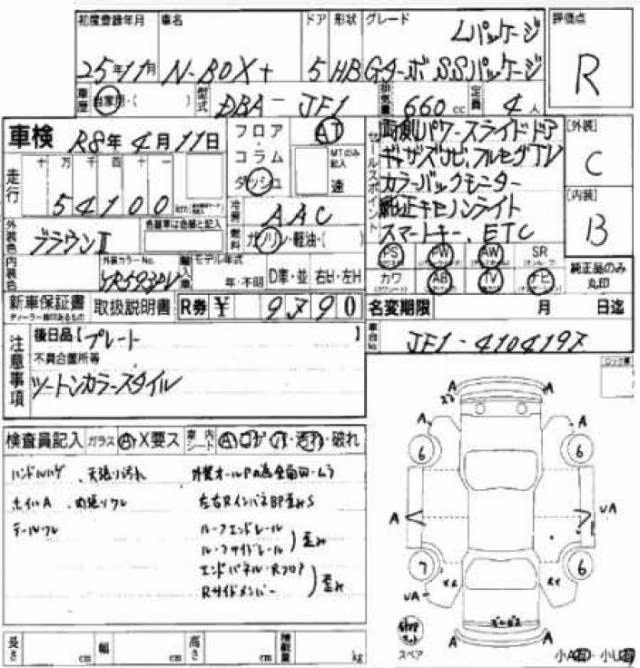 初度登録年月 車名 ドア 形状 グレード 評価点
Lパッケージ
25年11月 N-BOX+ 5 HB Gターボ SSパッケージ R
履歴 自家用・( ) 型式 DBA-JF1 排気量 660cc 定員 4人
車検 R8年4月11日
フロア・コラム ダッシュ AT MTのみ記入 速
セールスポイント
両側パワースライドドア
ギャザズナビ、フルセグTV
カラーバックモニター
純正キセノンライト
スマートキー、ETC
[外装] C
[内装] B
走行 十 万 千 百 十 一
54100 km
冷房 AAC
外装色 ブラウンⅡ 色替車は色替と記入 燃料 ガソリン・軽油・( )
内装色 外装カラーNo. YR593PV 輸入車 モデル年式 年・不明 D車・並 右H・左H
PS PW AW SR
カワ AB TV ナビ
純正品のみ丸印
新車保証書 取扱説明書 R券 ¥ 9790
ディーラー捺印あるもの
名変期限 月 日迄
車台No. JF1-4104197
注意事項
後日品【プレート 】
不具合箇所等
ツートンカラースタイル
検査員記入 ガラス A X要ス 車内シート A コゲ 穴・汚れ・破れ
ハンドルハゲ 天張り汚れ
ホイルA 内張りワレ
テールワレ
左右RインパネBP歪みS
ルーフエンドレール
ルーフサイドレール 歪み
エンドパネル・Rフロア
Rサイドメンバー 歪み
長さ cm 幅 cm 高さ cm 積載量 kg
A A
A A
6 6
A UA
7 6
UA
A A
スペア